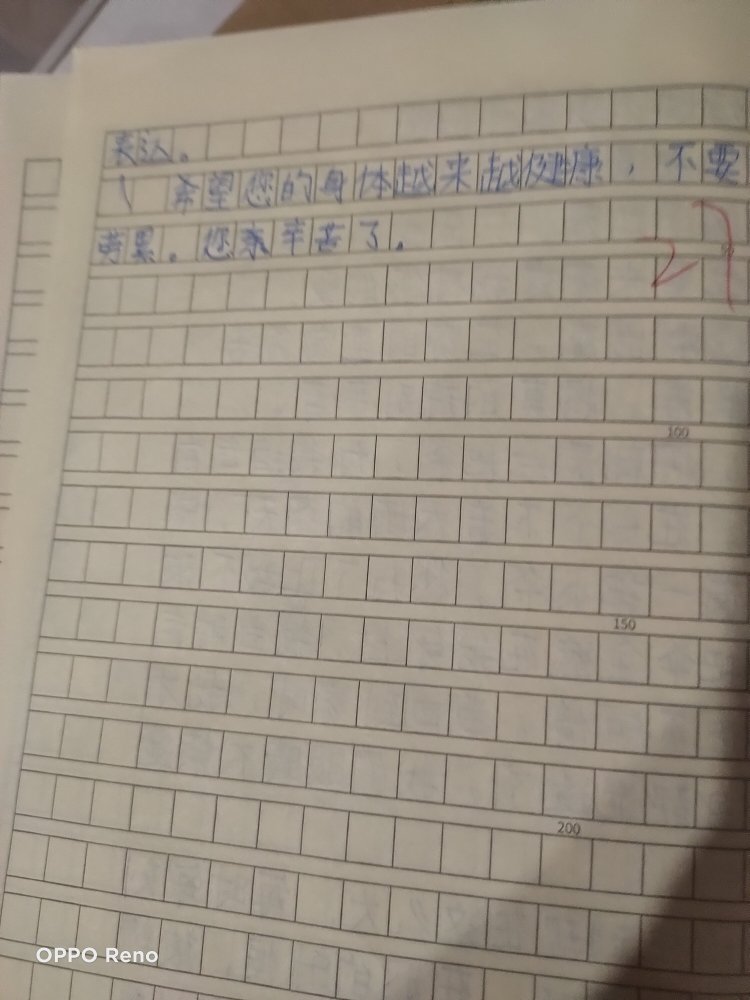 来认。
希望您的身体越来越健康，不要
劳累。您亲辛苦了。
27
100
150
200
OPPO Reno